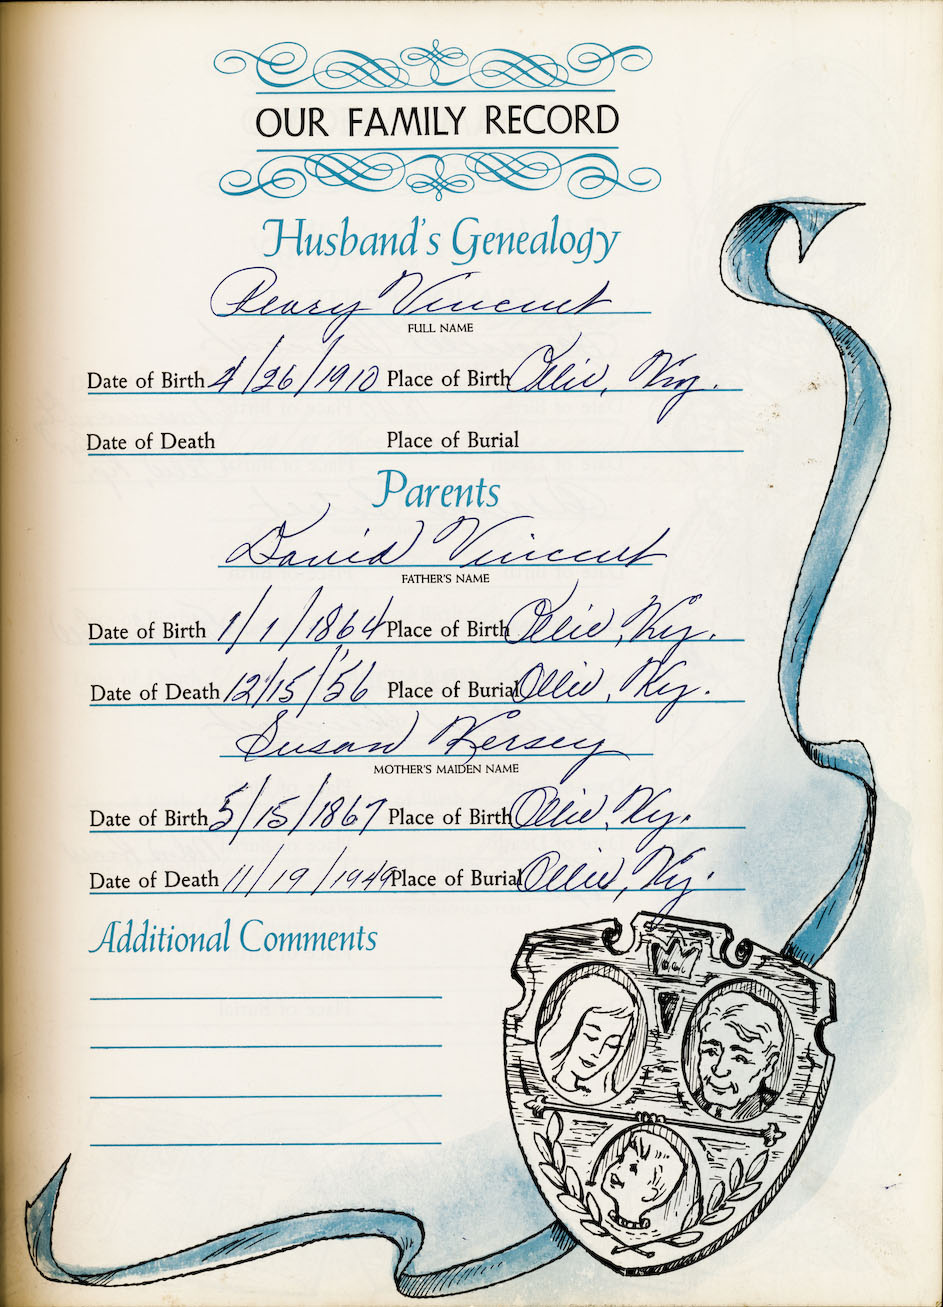 OUR FAMILY RECORD
Husband's Genealogy
Peary Vincent
FULL NAME
Date of Birth 4/26/1910 Place of Birth Ollie, Ky.
Date of Death Place of Burial
Parents
David Vincent
FATHER'S NAME
Date of Birth 1/1/1864 Place of Birth Ollie, Ky.
Date of Death 12/15/56 Place of Burial Ollie, Ky.
Susan Kersey
MOTHER'S MAIDEN NAME
Date of Birth 5/15/1867 Place of Birth Ollie, Ky.
Date of Death 11/19/1949 Place of Burial Ollie, Ky.
Additional Comments